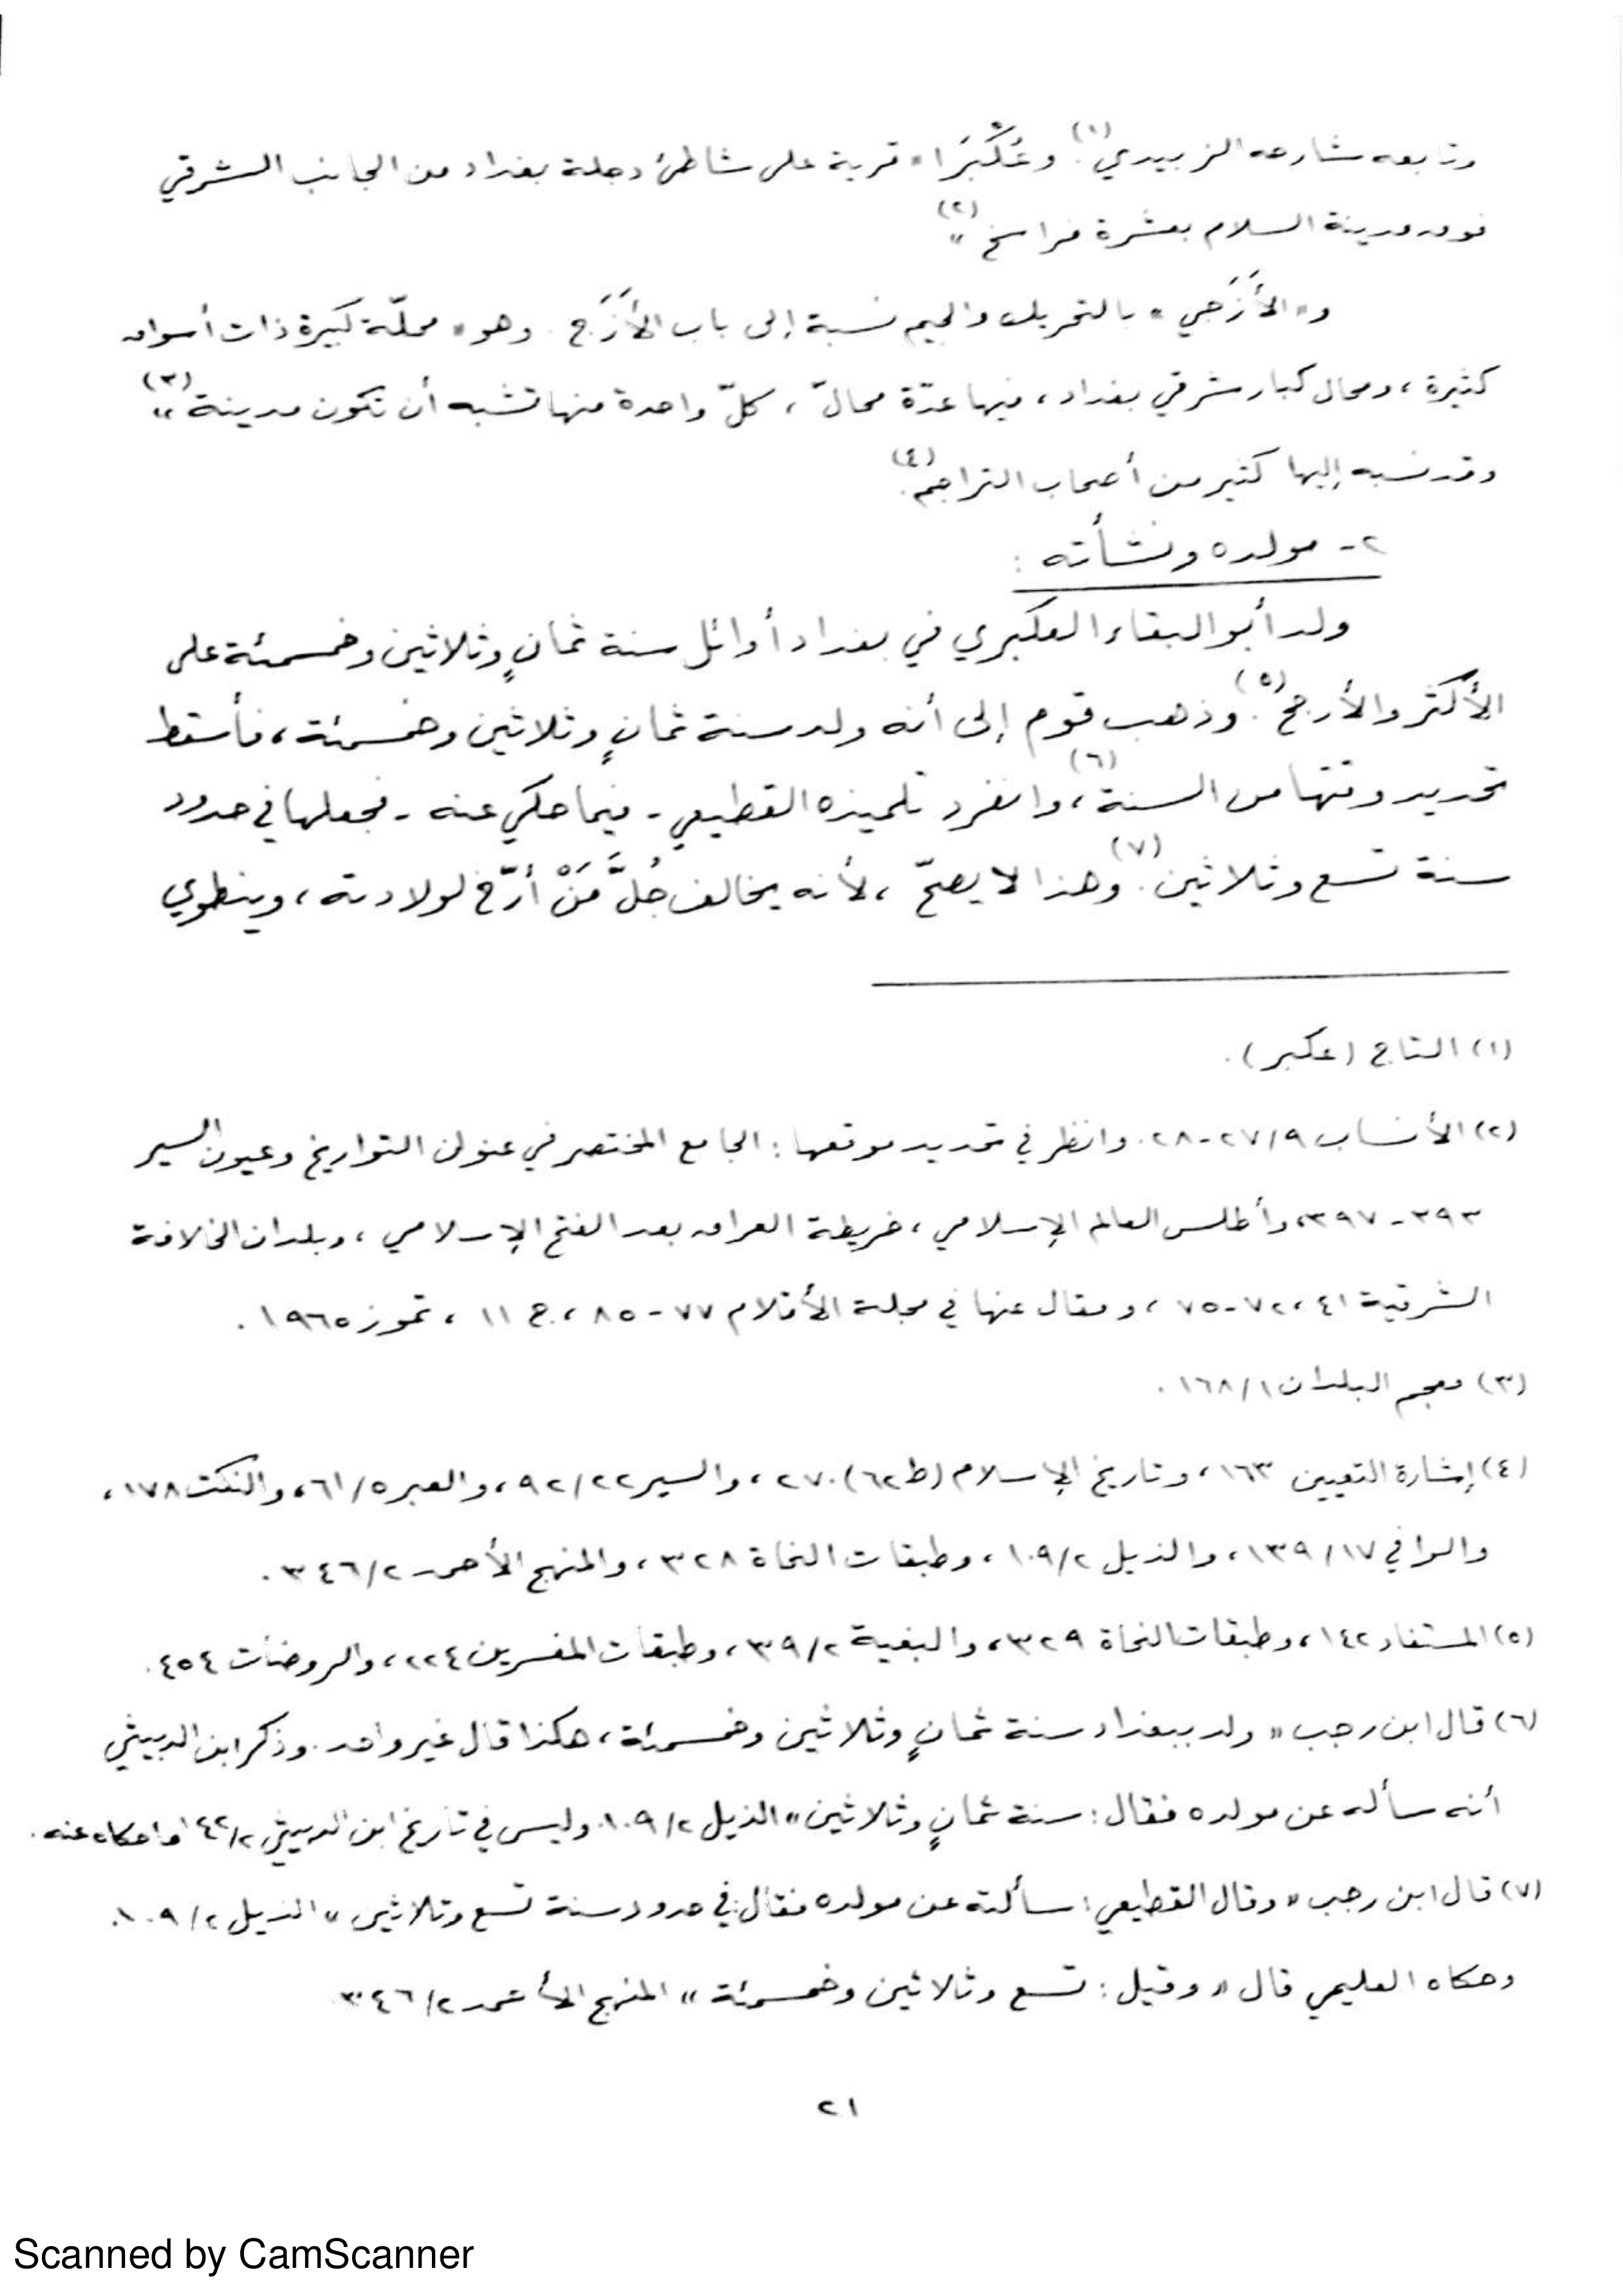 وتابعه شارحه الزبيدي(١). وعُكْبَرَا «قرية على شاطئ دجلة بغداد من الجانب الشرقي
فوق مدينة السلام بعشرة فراسخ»(٢)
و«الأَزَجي» بالتحريك والجيم نسبة إلى باب الأَزَج. وهو «محلّة كبيرة ذات أسواق
كثيرة، ومحال كبار شرقي بغداد، فيها عدّة محالّ، كلّ واحدة منها تشبه أن تكون مدينة»(٣)
وقد نسبه إليها كثير من أصحاب التراجم(٤).
٢- مولده ونشأته :
ولد أبو البقاء العكبري في بغداد أوائل سنة ثمانٍ وثلاثين وخمسمئة على
الأكثر والأرجح(٥). وذهب قوم إلى أنه ولد سنة ثمانٍ وثلاثين وخمسمئة، فأسقط
تحديد وقتها من السنة(٦)، وانفرد تلميذه القطيعي - فيما حكي عنه - فجعلها في حدود
سنة تسع وثلاثين(٧). وهذا لا يصحّ، لأنه يخالف جُلَّ مَنْ أرّخ لولادته، وينطوي
(١) التاج (عكبر).
(٢) الأنساب ٩/٢٧-٢٨. وانظر في تحديد موقعها: الجامع المختصر في عنوان التواريخ وعيون السير
٣٩٣-٣٩٧، وأطلس العالم الإسلامي، خريطة العراق بعد الفتح الإسلامي، وبلدان الخلافة
الشرقية ٤١، ٧٢-٧٥، ومقال عنها في مجلة الأقلام ٧٧-٨٥، ج ١١، تموز ١٩٦٥.
(٣) معجم البلدان ١/١٦٨.
(٤) إشارة التعيين ١٦٣، وتاريخ الإسلام (ط ٦٢) ٢٧٠، والسير ٢٢/٩٢، والعبر ٥/٦١، والنكت ١٧٨،
والوافي ١٧/١٣٩، والذيل ٢/١٠٩، وطبقات النحاة ٣٢٨، والمنهج الأحمد ٢/٣٤٦.
(٥) المستفاد ١٤٢، وطبقات النحاة ٣٢٩، والبغية ٢/٣٩، وطبقات المفسرين ٢٢٤، والروضات ٤٥٤.
(٦) قال ابن رجب «ولد ببغداد سنة ثمانٍ وثلاثين وخمسمئة، هكذا قال غير واحد. وذكر ابن الدبيثي
أنه سأله عن مولده فقال: سنة ثمانٍ وثلاثين» الذيل ٢/١٠٩. وليس في تاريخ ابن الدبيثي ما حكاه عنه.
(٧) قال ابن رجب «وقال القطيعي: سألته عن مولده فقال: في حدود سنة تسع وثلاثين» الذيل ٢/١٠٩.
وحكاه العليمي قال «وقيل: تسع وثلاثين وخمسمئة» المنهج الأحمد ٢/٣٤٦
٢١
Scanned by CamScanner